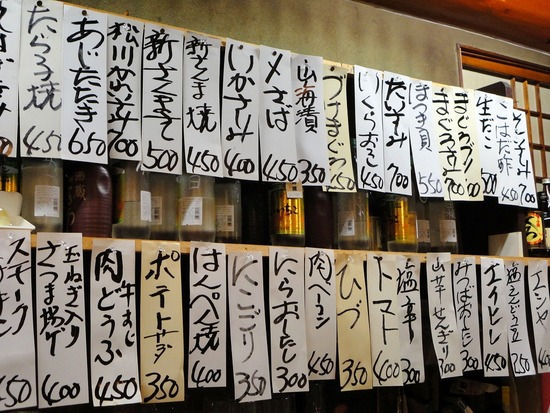 たら子焼
450
あじたたき
650
松川かれい刺
700
新さんまさし
500
新さんま焼
450
いかさしみ
400
〆さば
450
山海漬
350
づけまぐろ
いくらおろし
450
たいさしみ
700
ほっき貝
550
まぐろブツ
まぐろ刺
700
生たこ
500
こはだ酢
450
700
スモーク
450
玉ねぎ入り
さつま揚げ
400
牛すじ
肉どうふ
450
ポテトサラダ
350
はんぺん焼
400
にこごり
350
にらおひたし
300
肉ベーコン
450
ひづ
350
トマト
400
塩辛
300
山芋せんぎり
300
みつばおひたし
300
エイヒレ
450
塩らっきょう
250
エシャ
400